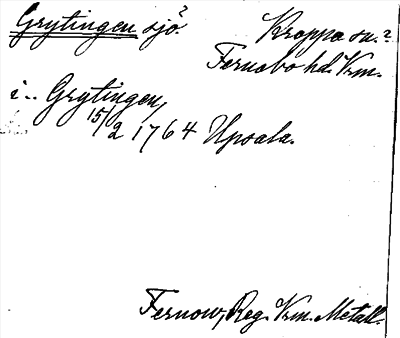 Grytingen sjö?
Kroppa sn.?
Fernebo hd. Vrm.
i.. Grytingen,
15/2 1764 Upsala.
Fernow, Reg. Vrm. Metall.